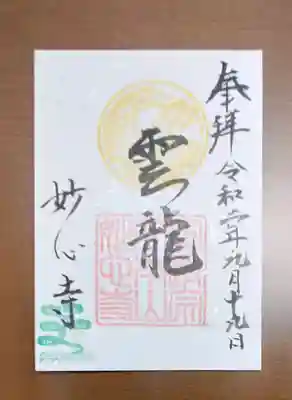 奉拝 令和二年九月十九日
雲龍
妙心寺